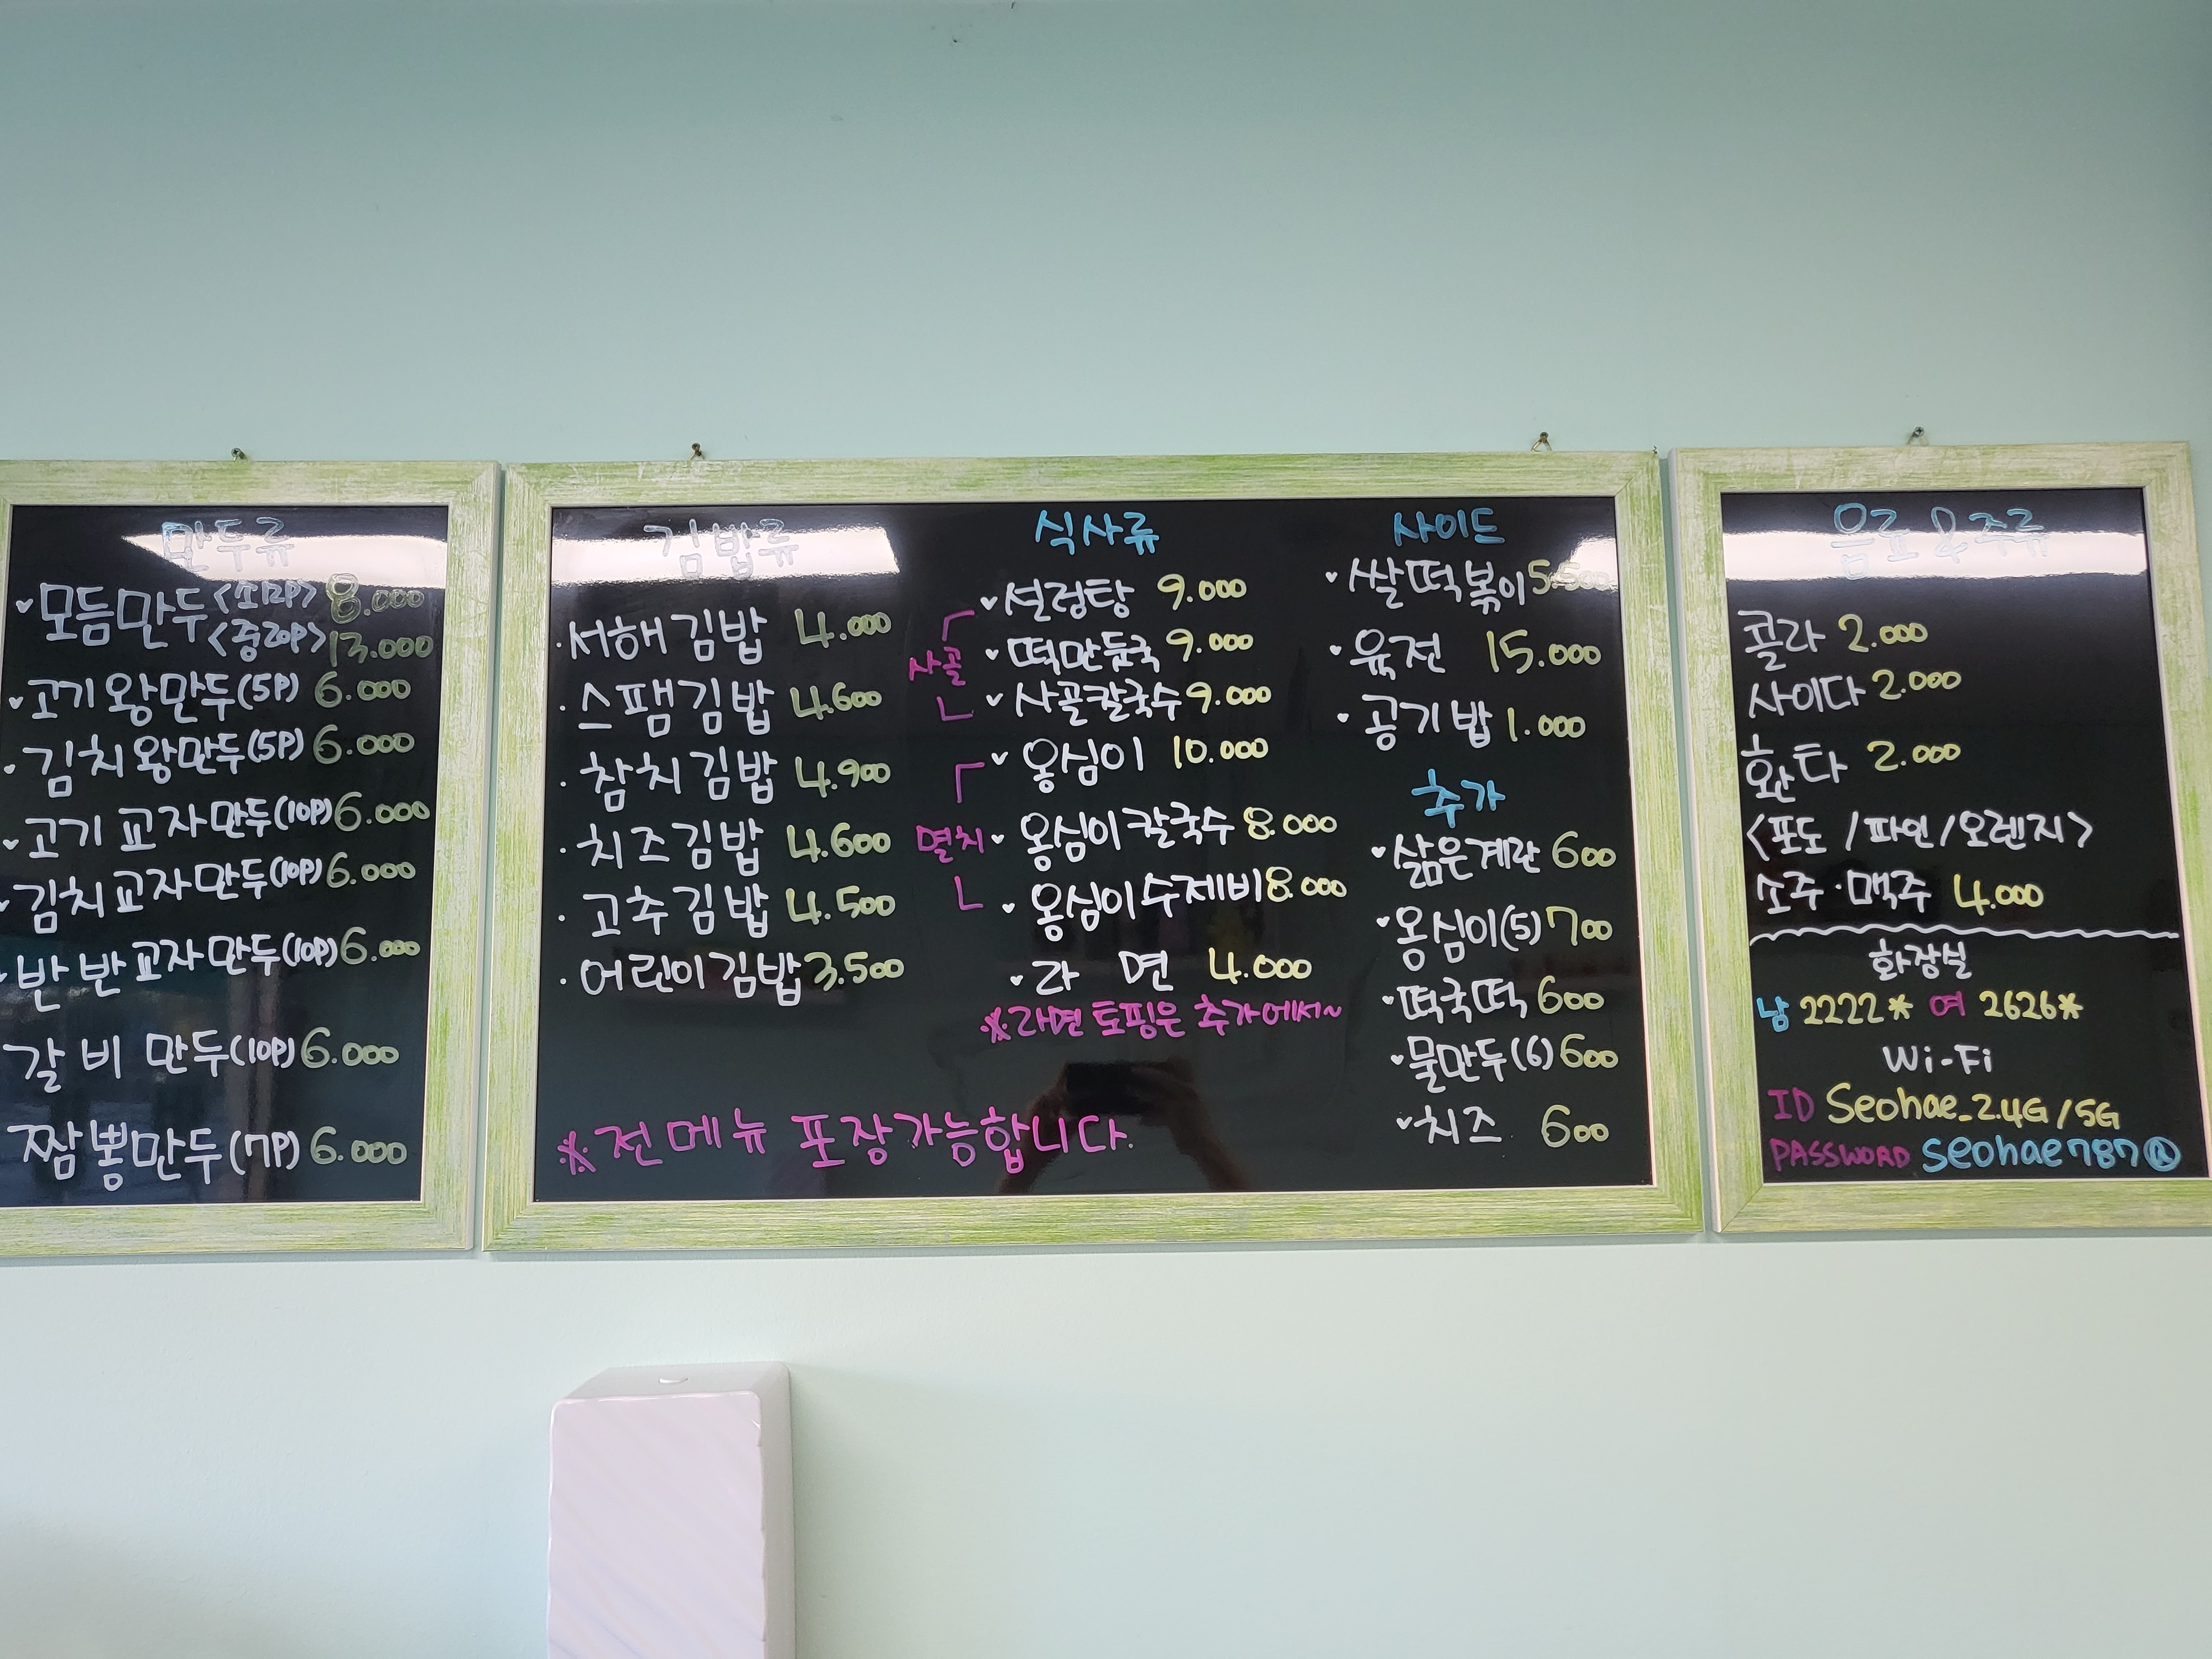 만두류
모듬만두 <소12P> 8.000
<중20P> 13.000
고기왕만두(5P) 6.000
김치왕만두(5P) 6.000
고기교자만두(10P) 6.000
김치교자만두(10P) 6.000
반반교자만두(10P) 6.000
갈비만두(10P) 6.000
짬뽕만두(7P) 6.000
김밥류
서해김밥 4.000
스팸김밥 4.600
참치김밥 4.900
치즈김밥 4.600
고추김밥 4.500
어린이김밥 3.500
식사류
사골
설렁탕 9.000
떡만둣국 9.000
사골칼국수 9.000
멸치
옹심이 10.000
옹심이칼국수 8.000
옹심이수제비 8.000
라면 4.000
※라면 토핑은 추가에서~
※전메뉴 포장가능합니다.
사이드
쌀떡볶이 5.500
육전 15.000
공기밥 1.000
추가
삶은계란 600
옹심이(5) 700
떡국떡 600
물만두(6) 600
치즈 600
음료 & 주류
콜라 2.000
사이다 2.000
환타 2.000
<포도/파인/오렌지>
소주·맥주 4.000
화장실
남 2222* 여 2626*
Wi-Fi
ID Seohae_2.4G/5G
PASSWORD seohae787@